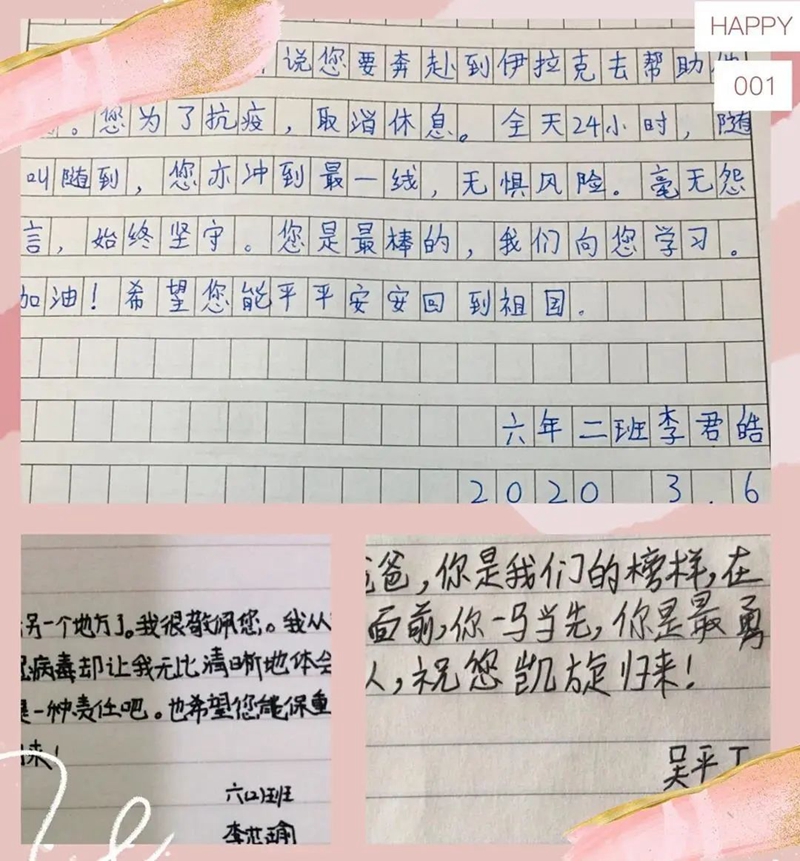 HAPPY
001
说您要奔赴到伊拉克去帮助他
。您为了抗疫，取消休息。全天24小时，随
叫随到，您亦冲到最一线，无惧风险。毫无怨
言，始终坚守。您是最棒的，我们向您学习。
加油！希望您能平平安安回到祖国。
六年二班李君皓
2020 3.6
另一个地方了。我很敬佩您。我从
病毒却让我无比清晰地体会
是一种责任吧。也希望您能保重
来！
六(2)班
爸，你是我们的榜样，在
面前，你一马当先，你是最勇
人，祝您凯旋归来！
吴平